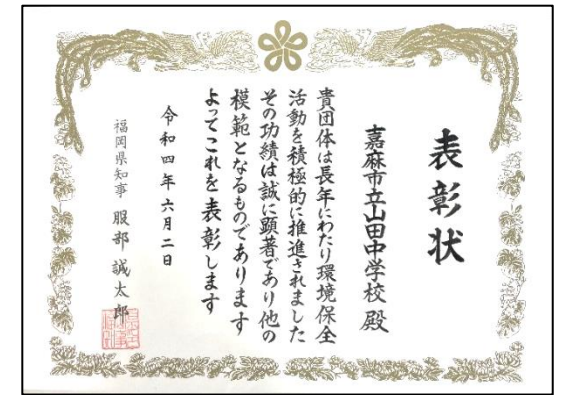 表彰状
嘉麻市立山田中学校 殿
貴団体は長年にわたり環境保全
活動を積極的に推進されました
その功績は誠に顕著であり他の
模範となるものであります
よってこれを表彰します
令和四年六月二日
福岡県知事 服部 誠太郎